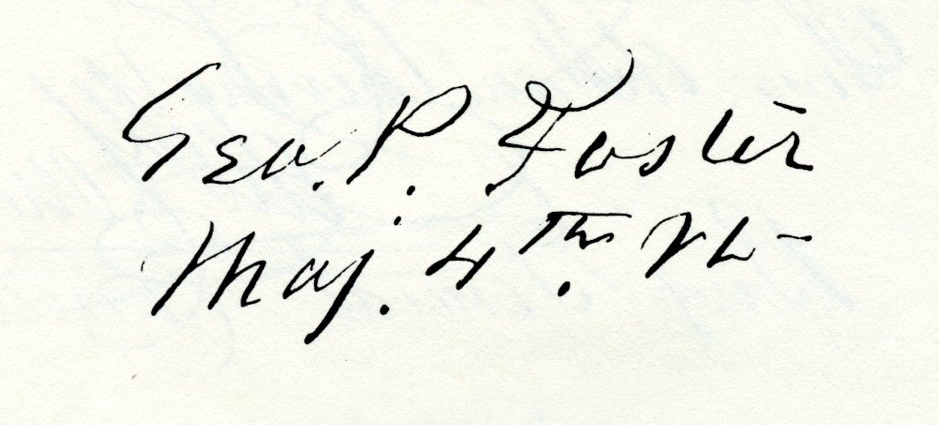 Geo. P. Foster
Maj. 4th. Vt